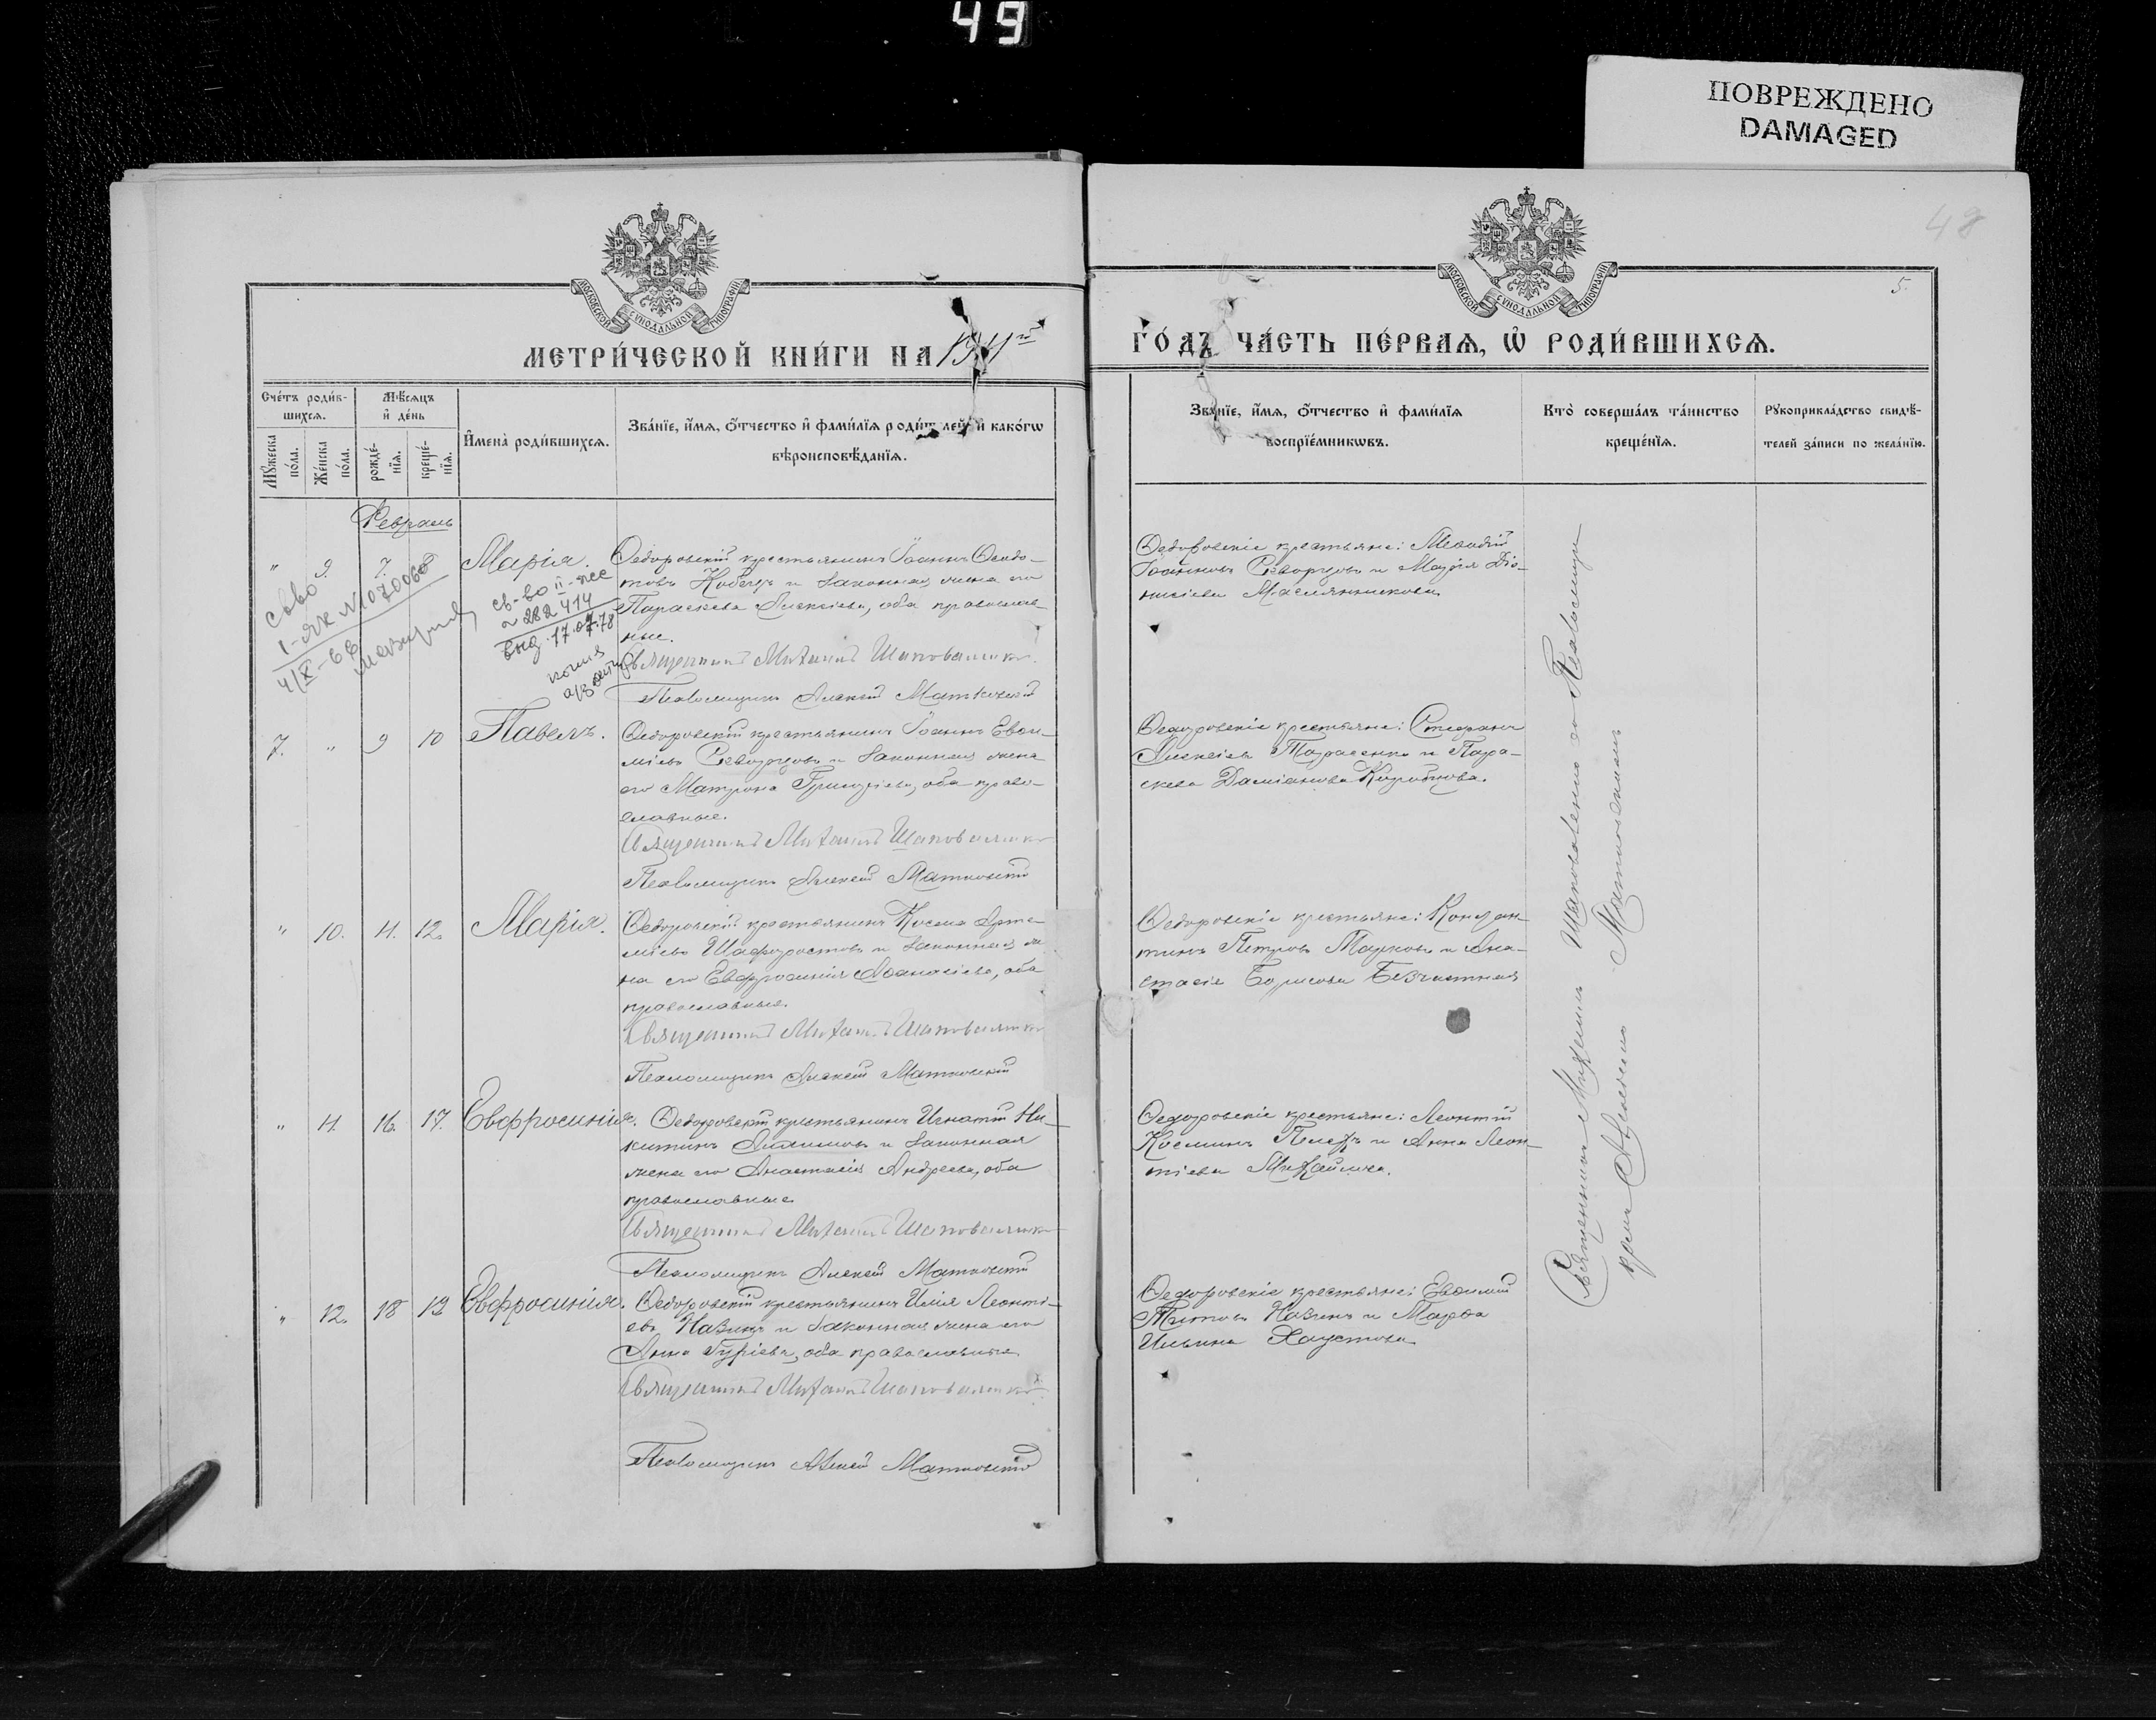 49
ПОВРЕЖДЕНО
DAMAGED
48
5
МОСКОВСКОЙ СѴНОДАЛЬНОЙ ТИПОГРАФІИ
МОСКОВСКОЙ СѴНОДАЛЬНОЙ ТИПОГРАФІИ
МЕТРИ́ЧЕСКОЙ КНИ́ГИ НА 1911й
ГО́ДЪ ЧА́СТЬ ПЕ́РВАѦ, Ѡ҆ РОДИ́ВШИХСѦ.
Сче́тъ роди́в-
шихсѧ.
Мꙋ́жеска по́ла.
Же́нска по́ла.
Мѣ́сѧцъ
и҆ де́нь
рожде́-нїѧ.
креще́-нїѧ.
И҆мена̀ роди́вшихсѧ.
Зва́нїе, и҆́мѧ, ѻ҆́тчество и҆ фами́лїѧ роди́телей, и҆ како́гѡ
вѣроисповѣ́данїѧ.
Зва́нїе, и҆́мѧ, ѻ҆́тчество и҆ фами́лїѧ
воспрїе́мникѡвъ.
Кто̀ соверша́лъ та́инство
креще́нїѧ.
Рꙋкоприкла́дство свидѣ́-
телей за́писи по жела́нїю.
Февраль
" 9. 7.
Марія.
Ѳедоровскій крестьянинъ Іоаннъ Ѳеодо-
товъ Кобецъ и законная жена его
Параскева Алексіева, оба православ-
ные.
Священникъ Михаилъ Шаповаленко
Псаломщикъ Алексій Матковскій
Ѳедоровскіе крестьяне: Меѳодій
Іоанновъ Скворцовъ и Марія Діо-
нисіева Масляникова
св-во
4/X-66
св-во II-лес
282414
выд. 17.07.78
7. " 9 10
Павелъ.
Ѳедоровскій крестьянинъ Іоаннъ Евѳи-
міевъ Скворцовъ и законная жена
его Матрона Григоріева, оба право-
славные.
Священникъ Михаилъ Шаповаленко
Псаломщикъ Алексій Матковскій
Ѳедоровскіе крестьяне: Стефанъ
Алексіевъ Тарасенко и Пара-
скева Даміанова
" 10. 11. 12.
Марія.
Ѳедоровскій крестьянинъ Косма Арте-
міевъ Шафоростовъ и законная же
на его Евфросинія Аѳанасіева, оба
православные.
Священникъ Михаилъ Шаповаленко
Псаломщикъ Алексій Матковскій
Ѳедоровскіе крестьяне: Констан-
тинъ Петровъ Марковъ и Ана-
стасія Борисова Безчастная
" 11. 16. 17.
Евфросинія.
Ѳедоровскій крестьянинъ Игнатій Ни-
китинъ и законная
жена его Анастасія Андреева, оба
православные
Священникъ Михаилъ Шаповаленко
Псаломщикъ Алексій Матковскій
Ѳедоровскіе крестьяне: Леонтій
Косминъ и Анна Леон-
тіева
" 12. 18 19
Евфросинія.
Ѳедоровскій крестьянинъ Илія Леонті-
евъ Назинъ и законная жена его
Анна Гуріева, оба православные.
Священникъ Михаилъ Шаповаленко
Псаломщикъ Алексій Матковскій
Ѳедоровскіе крестьяне: Евѳимій
Титовъ Назинъ и Марѳа
Ильина Хаустова
Священникъ Михаилъ Шаповаленко съ Псаломщи-
комъ Алексіемъ Матковскимъ